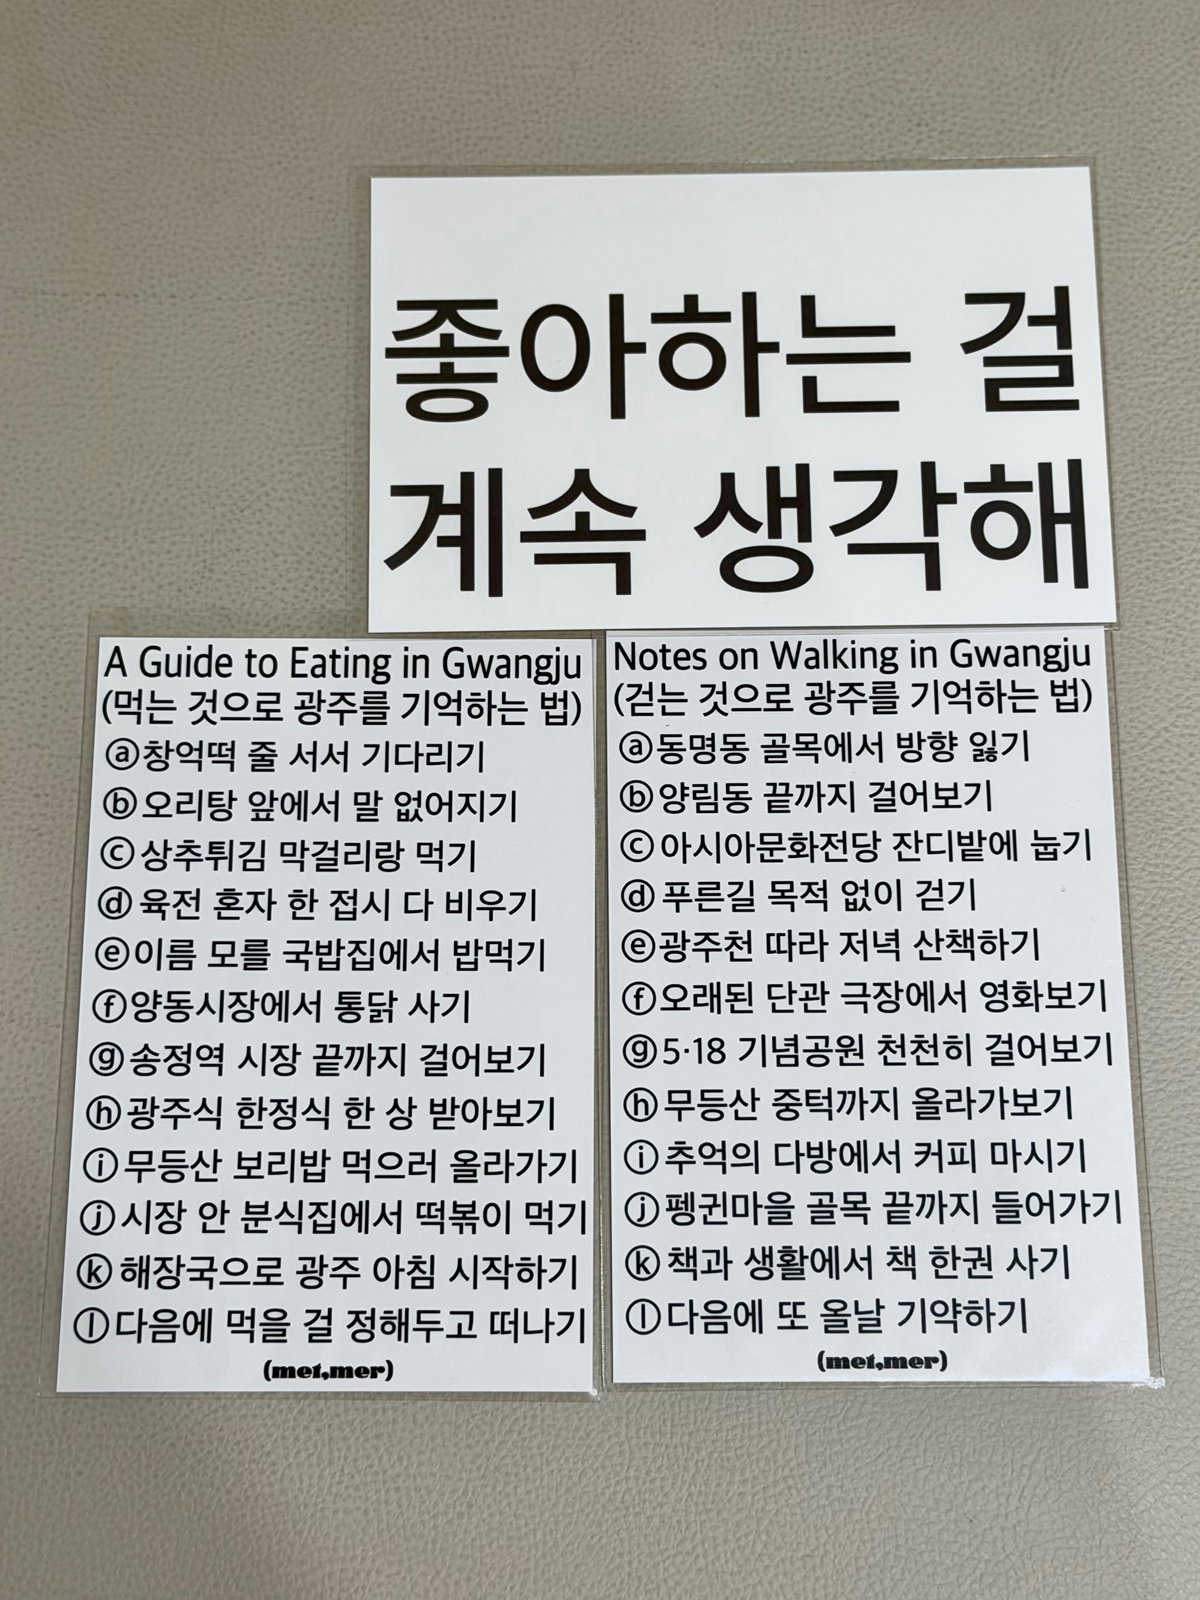 좋아하는 걸
계속 생각해
A Guide to Eating in Gwangju
(먹는 것으로 광주를 기억하는 법)
ⓐ창억떡 줄 서서 기다리기
ⓑ오리탕 앞에서 말 없어지기
ⓒ상추튀김 막걸리랑 먹기
ⓓ육전 혼자 한 접시 다 비우기
ⓔ이름 모를 국밥집에서 밥먹기
ⓕ양동시장에서 통닭 사기
ⓖ송정역 시장 끝까지 걸어보기
ⓗ광주식 한정식 한 상 받아보기
ⓘ무등산 보리밥 먹으러 올라가기
ⓙ시장 안 분식집에서 떡볶이 먹기
ⓚ해장국으로 광주 아침 시작하기
ⓛ다음에 먹을 걸 정해두고 떠나기
(met,mer)
Notes on Walking in Gwangju
(걷는 것으로 광주를 기억하는 법)
ⓐ동명동 골목에서 방향 잃기
ⓑ양림동 끝까지 걸어보기
ⓒ아시아문화전당 잔디밭에 눕기
ⓓ푸른길 목적 없이 걷기
ⓔ광주천 따라 저녁 산책하기
ⓕ오래된 단관 극장에서 영화보기
ⓖ5·18 기념공원 천천히 걸어보기
ⓗ무등산 중턱까지 올라가보기
ⓘ추억의 다방에서 커피 마시기
ⓙ펭귄마을 골목 끝까지 들어가기
ⓚ책과 생활에서 책 한권 사기
ⓛ다음에 또 올날 기약하기
(met,mer)